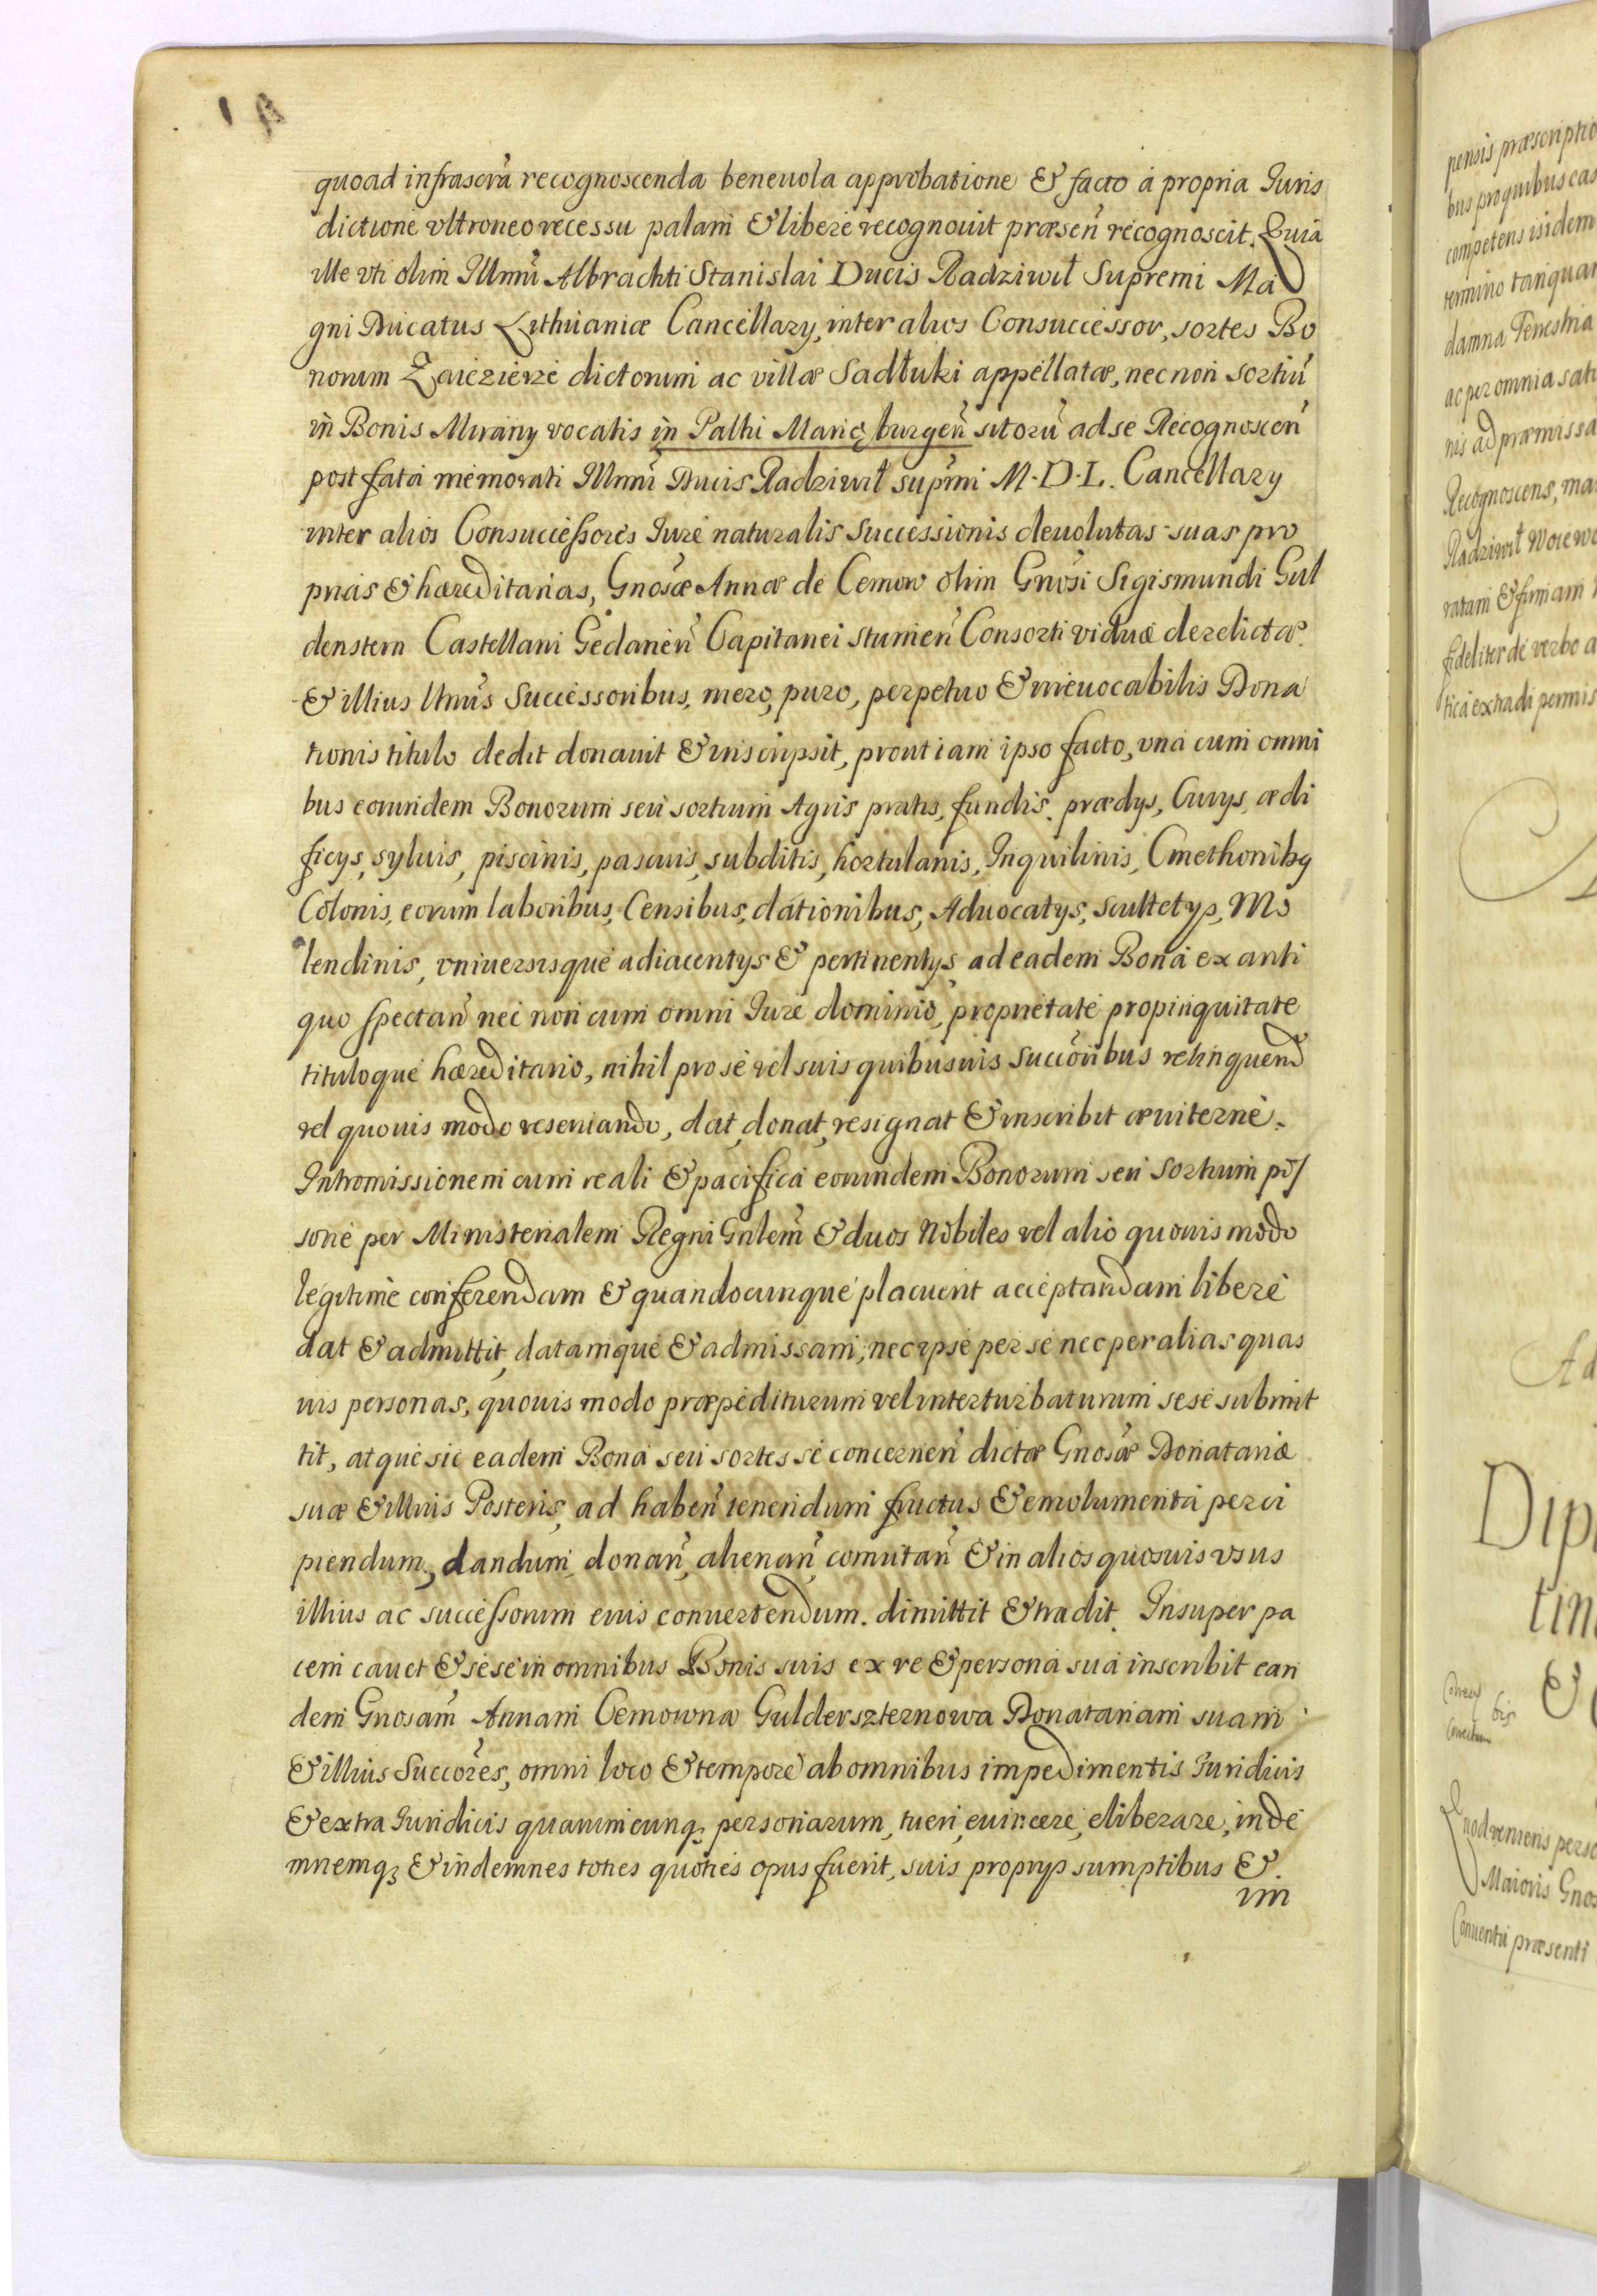 quoad infrascrã recognoscenda beneuola approbatione & facto à propria Iuris
dictione vltroneo recessu palam & liberè recognouit præseñ recognoscit. Quia
ille vti olim Illmi Albrachti Stanislai Ducis Radziwił Supremi Ma
gni Ducatus Lithuaniæ Cancellary, inter alios Consuccessor, sortes Bo
norum Zaiezierze dictorum ac villæ Sadłuki appellatæ, nec non sortiũ
in Bonis Mirany vocatis in Palti Marięburgeñ sitorũ ad se Recognosceñ
post fata memorati Illmi Ducis Radziwił supmi M. D. L. Cancellary
inter alios Consuccessores Iure naturalis Successionis deuolutas suas pro
prias & hæreditarias, Gnosæ Annæ de Cemow olim Gnosi Sigismundi Gul
denstern Castellani Gedaneñ Capitanei Stumeñ Consorti viduæ derelictæ
& illius ltmis Successoribus, mero, puro, perpetuo & irreuocabilis Dona
tionis titulo dedit donauit & inscripsit, prout iam ipso facto, vna cum omni
bus eorundem Bonorum seu sortium Agris pratis, fundis, prædys, Curys, ædi
ficys, syluis, piscinis, pascuis, subditis, hortulanis, Inquilinis, Cmethonibq
Colonis, eorum laboribus, Censibus, dationibus, Aduocatys, scultetys, Mo
lendinis, vniuersisque adiacentys & pertinentys ad eadem Bona ex anti
quo spectañ nec non cum omni Iure dominio, proprietate propinquitate
tituloque hæreditario, nihil pro se vel suis quibusuis Succoribus relinquend
vel quouis modo reseruando, dat, donat, resignat & inscribit æuiternè.
Intromissionem cum reali & pacifica eorundem Bonorum seu Sortium poss
sione per Ministerialem Regni Gnlem & duos Nobiles vel alio quouis modo
legitimè conferendam & quandocunque placuerit acceptandam liberè
dat & admittit, datamque & admissam, nec ipse per se nec per alias quas
uis personas, quouis modo præpediturum vel interturbaturum sese submit
tit, atque sic eadem Bona seu sortes se concerneñ dictæ Gnosæ Donatariæ
suæ & illius Posteris, ad habeñ tenendum fructus & emolumenta perci
piendum, dandum, donañ, alienañ, comutañ & in alios quosuis vsus
illius ac successorum eius conuertendum. dimittit & tradit. Insuper pa
cem cauet & sese in omnibus Bonis suis ex re & persona sua inscribit ean
dem Gnosam Annam Cemowna Gulderszternowa Donatariam suam
& illius Succores, omni loco & tempore ab omnibus impedimentis Iuridicis
& extra Iuridicis quarumcunqꝫ personarum, tueri, euincere, eliberare, inde
mnemqꝫ & indemnes toties quoties opus fuerit, suis proprys sumptibus &.
im
pensis præscriptio
bus pro quibus cas
competens isidem
termino tanquam
damna Terrestria
ac per omnia satis
nis ad præmissa
Recognoscens, ma
Radziwił Woiewo
ratam & firmam
fideliter de verbo a
tica extradi permis
Ad
Dip
tin
&
bis
Maioris Gnos
Conuentu præsenti